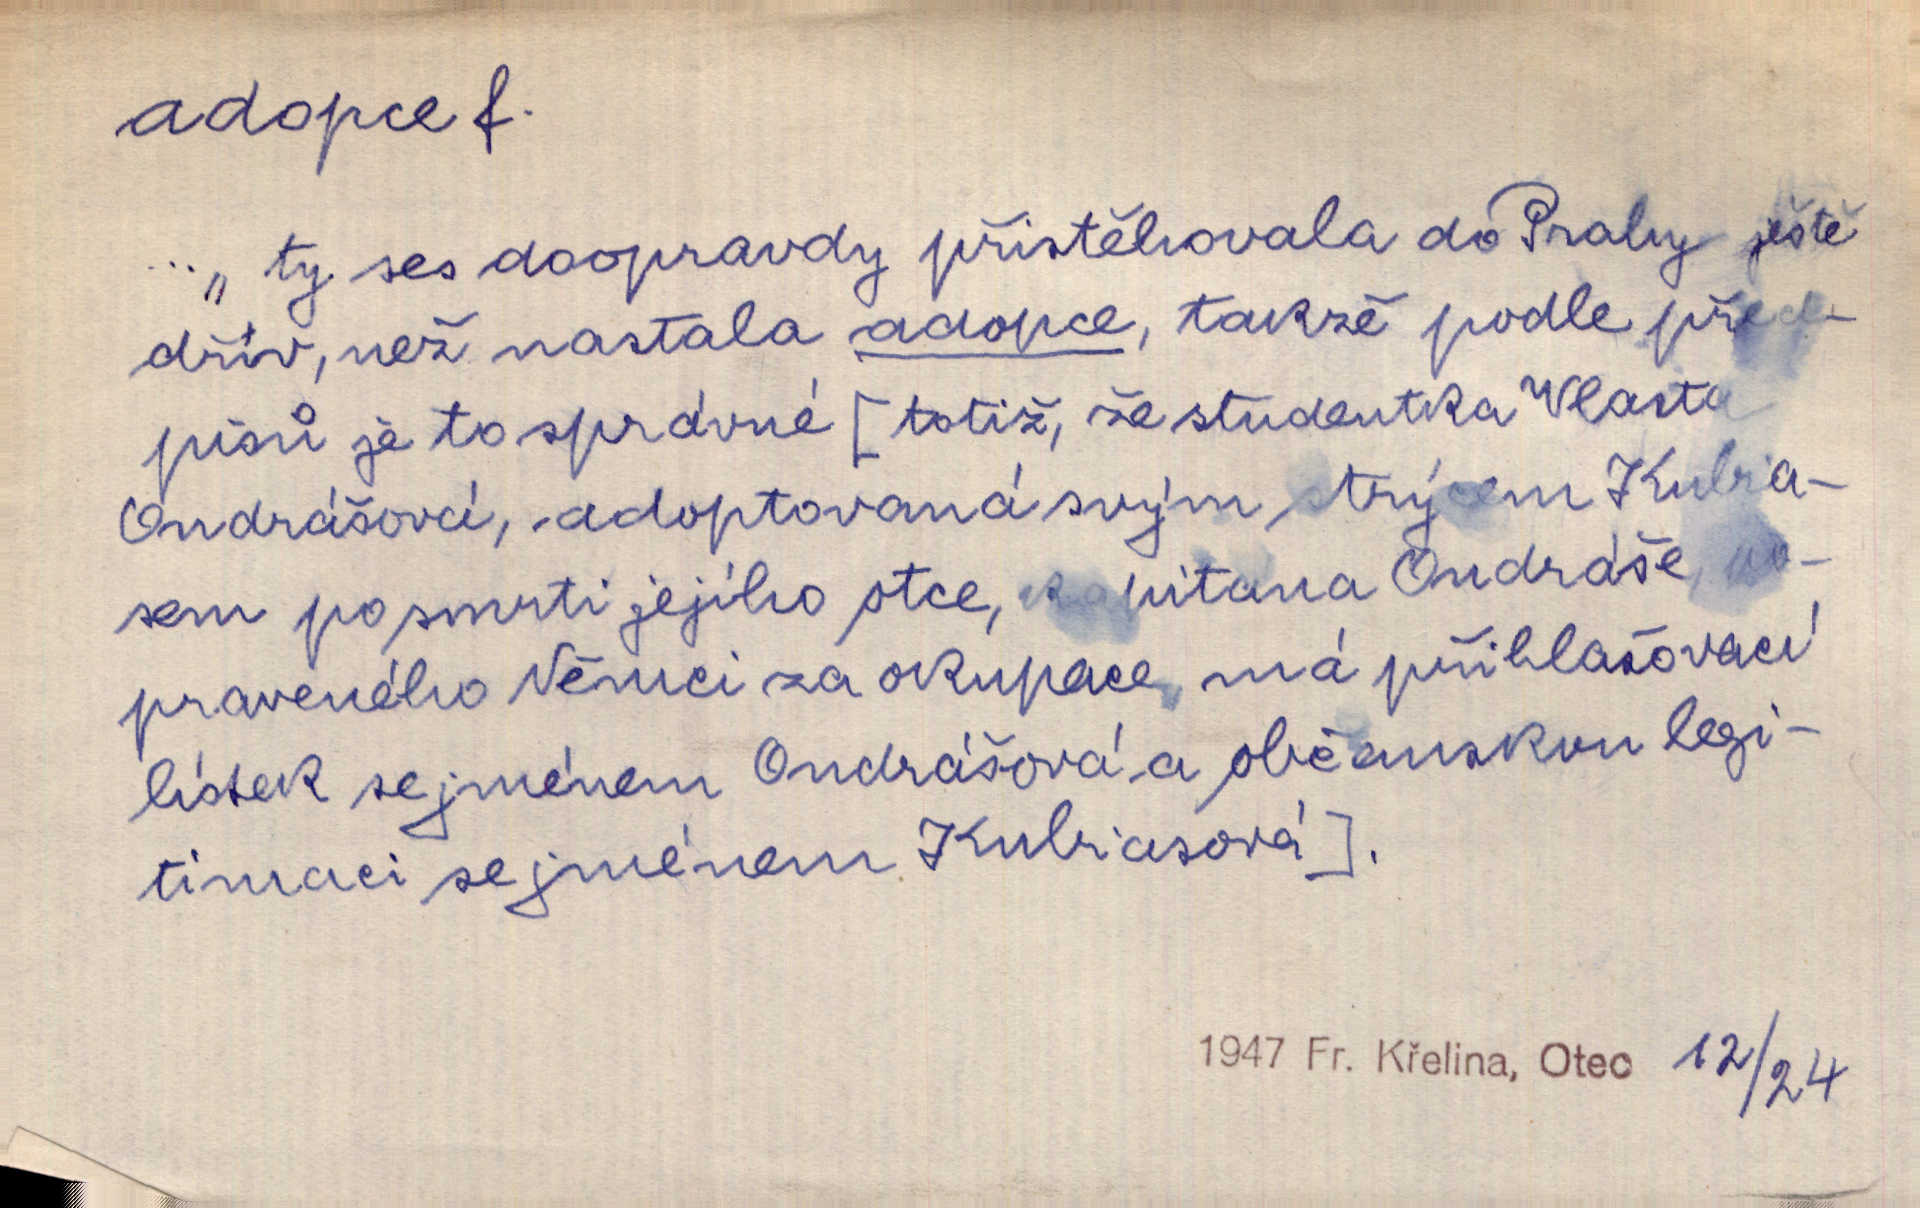 adopce f.
...„ ty ses doopravdy přistěhovala do Prahy ještě
dřív, než nastala adopce, takže podle před-
pisů je to správné [totiž, že studentka Vlasta
Ondrášová, adoptovaná svým strýcem Kubia-
sem po smrti jejího otce, kapitána Ondráše,
praveného Němci za okupace, má přihlašovací
lístek se jménem Ondrášová a občanskou legi-
timaci se jménem Kubiasová].
1947 Fr. Křelina, Otec 12/24